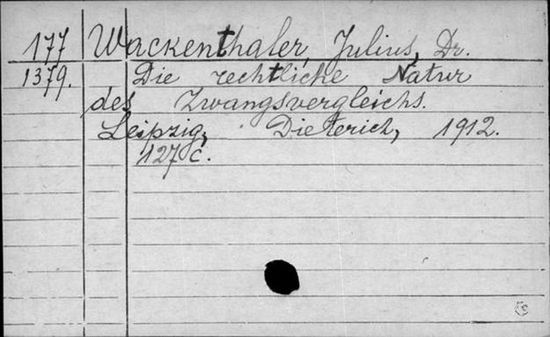 177 Wackenthaler, Julius, Dr.
1379. Die rechtliche Natur
des Zwangsvergleichs.
Leipzig, Dieterich, 1912.
127 c.